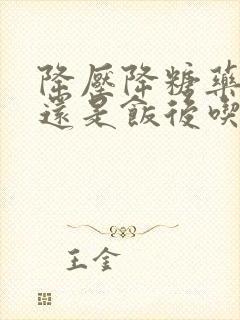 降壓降糖藥
還是飯後喫
王金